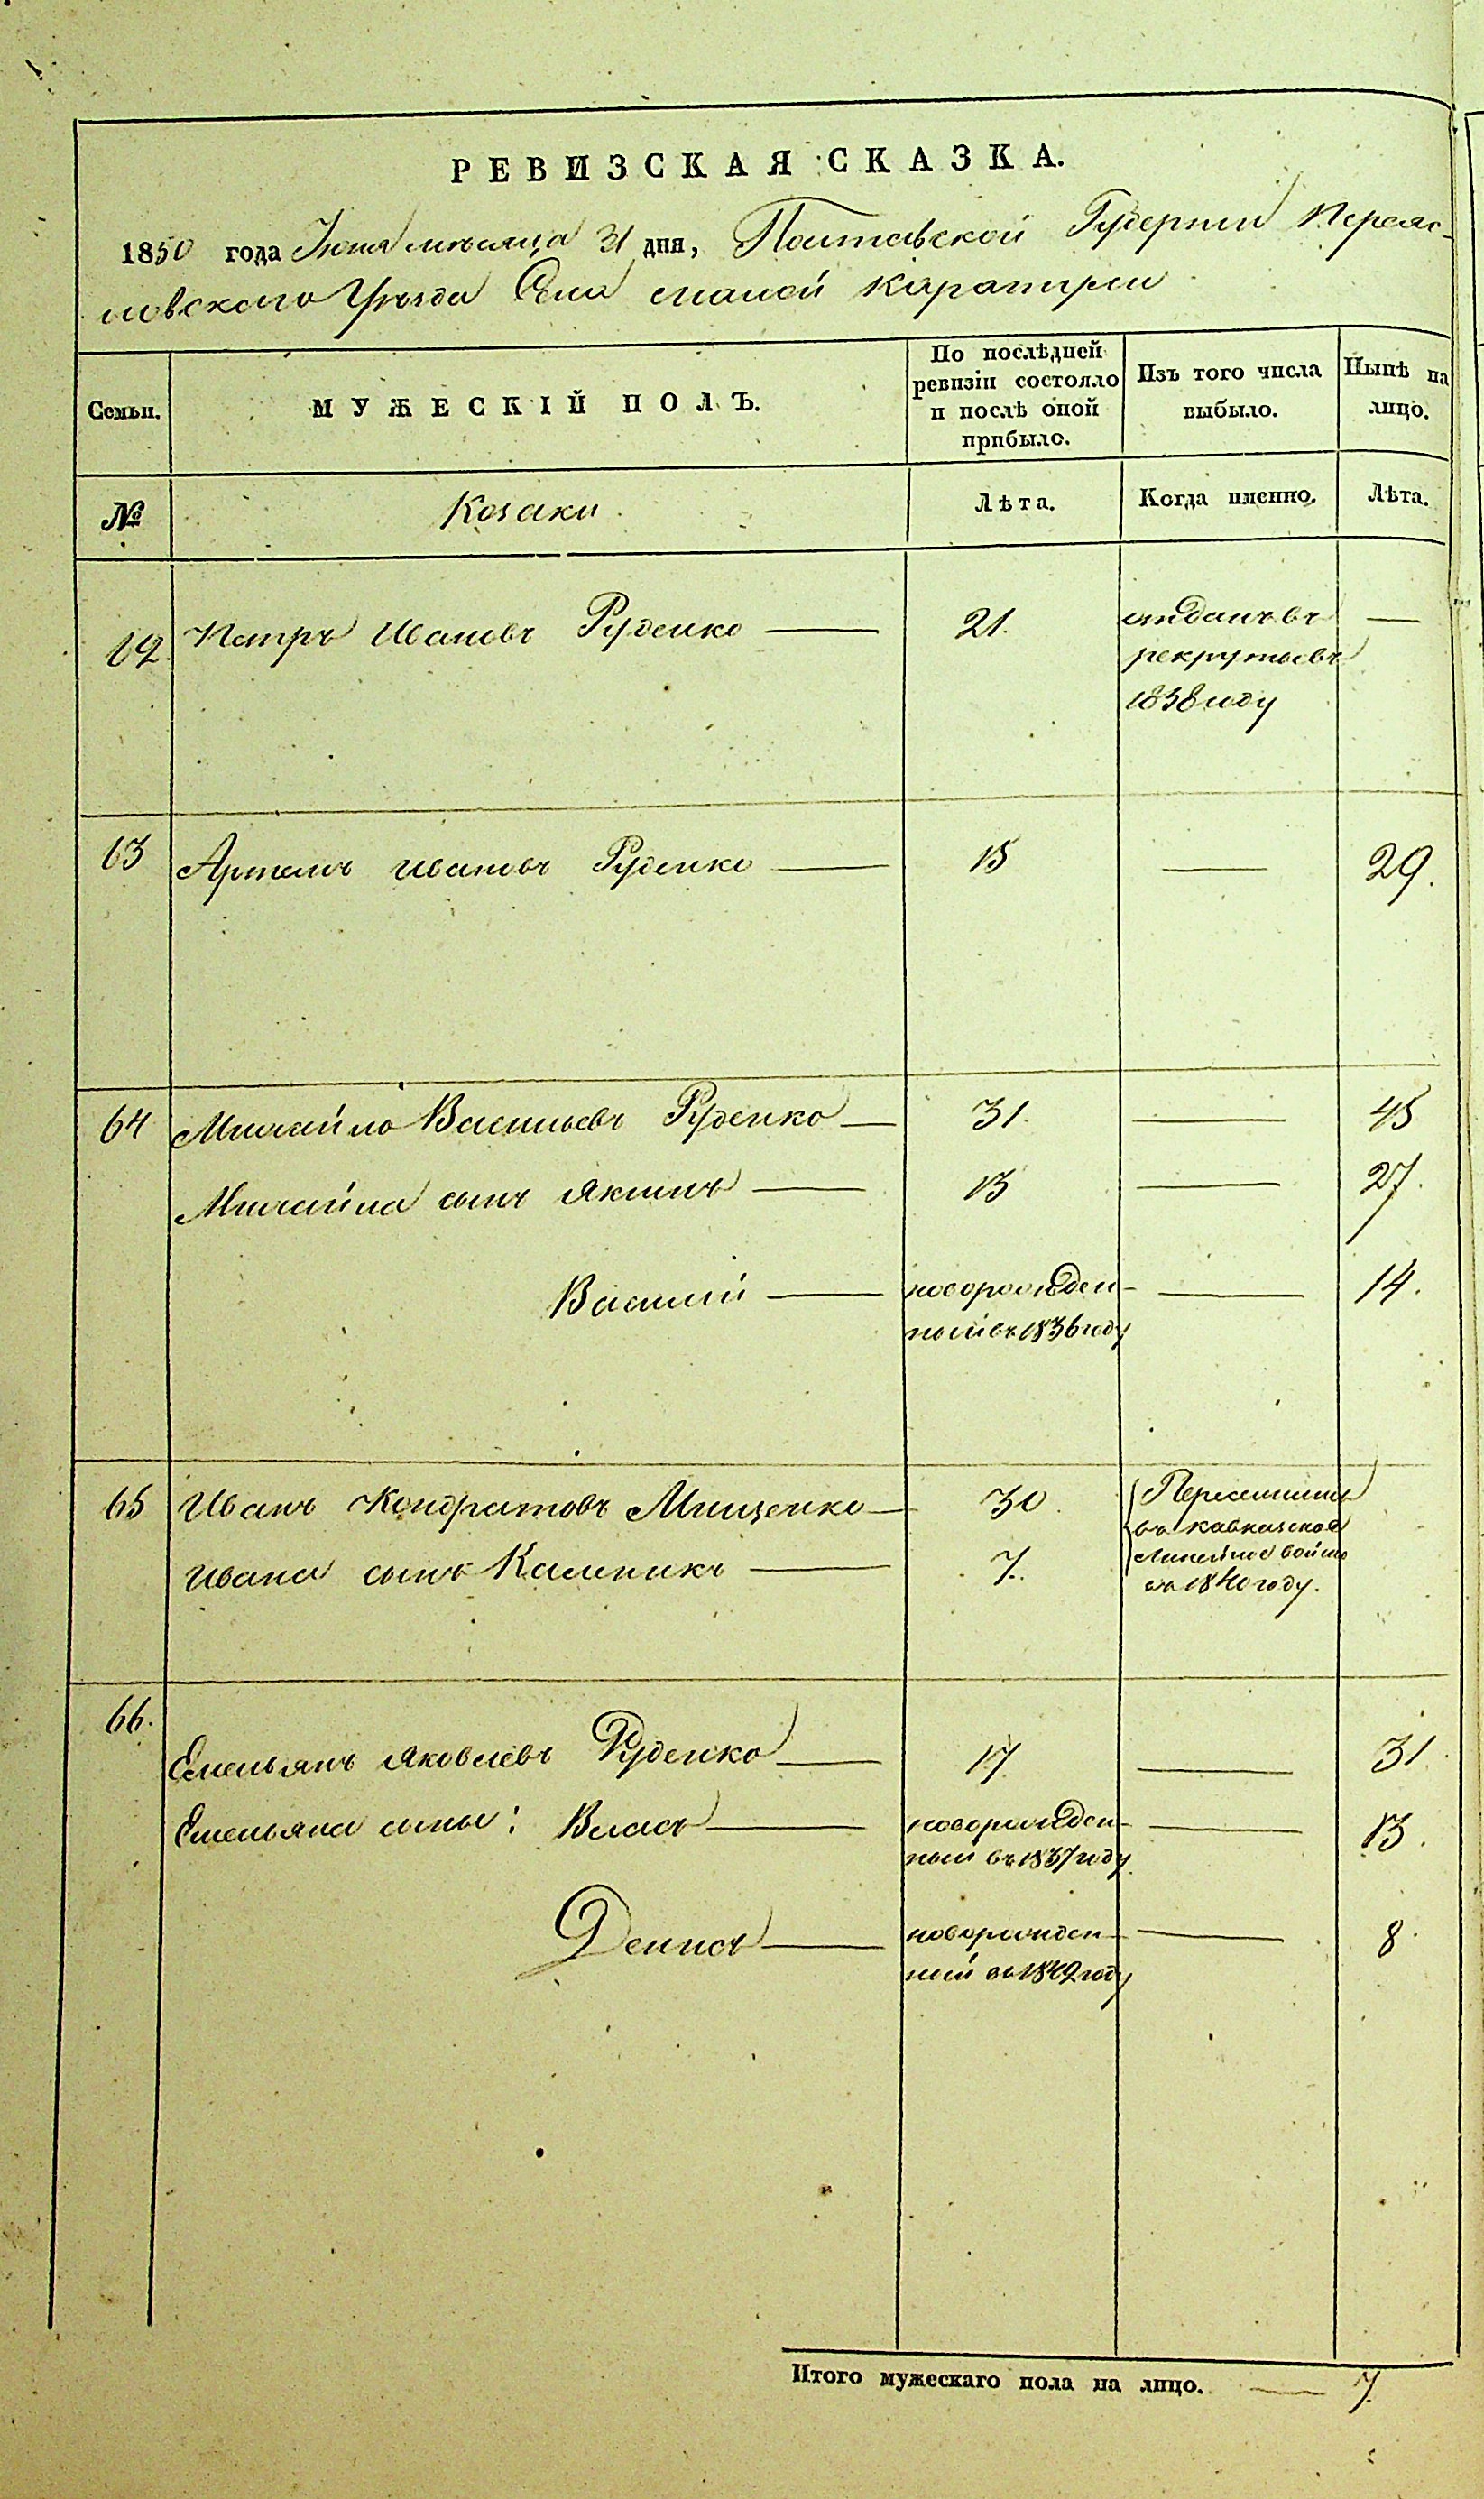 РЕВИЗСКАЯ СКАЗКА.
1850 года Июля месяца 31 дня, Полтавской Губернии Переяс-
ловского Уѣзда Села малой Каратули
Семьи.
МУЖЕСКІЙ ПОЛЪ.
По послѣдней ревизіи состояло и послѣ оной прибыло.
Изъ того числа выбыло.
Нынѣ на лицо.
№
Козаки
Лѣта.
Когда именно.
Лѣта.
62 Петръ Ивановъ Руденко — 21. отданъ въ —
рекруты въ
1838 году
63 Артемъ Ивановъ Руденко — 15 — 29.
64 Михайло Васильевъ Руденко — 31. — 45
Михайла сынъ Якимъ — 13 — 27.
Василій — новорожден- — 14.
ный въ 1836 году
65 Иванъ Кондратовъ Мищенко — 30. Переселились
Ивана сынъ Калиникъ — 7.
въ Кавказское
Линейное войско
въ 1840 году.
66. Емельянъ Яковлевъ Руденко — 17 — 31.
Емельяна сыны: Власъ — новорожден- — 13.
ный въ 1837 году
Денисъ — новорожден- — 8.
ный въ 1842 году
Итого мужескаго пола на лицо. — 7.